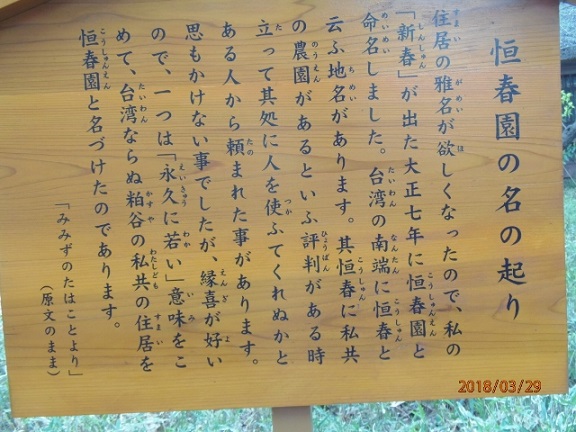 恒春園の名の起り
住居の雅名が欲しくなったので、私の
「新春」が出た大正七年に恒春園と
命名しました。台湾の南端に恒春と
云ふ地名があります。其恒春に私共
の農園があるといふ評判がある時
立って其処に人を使ふてくれぬかと
ある人から頼まれた事があります。
思もかけない事でしたが、縁喜が好い
ので、一つは「永久に若い」意味をこ
めて、台湾ならぬ粕谷の私共の住居を
恒春園と名づけたのであります。
「みみずのたはことより」
(原文のまま)
2018/03/29